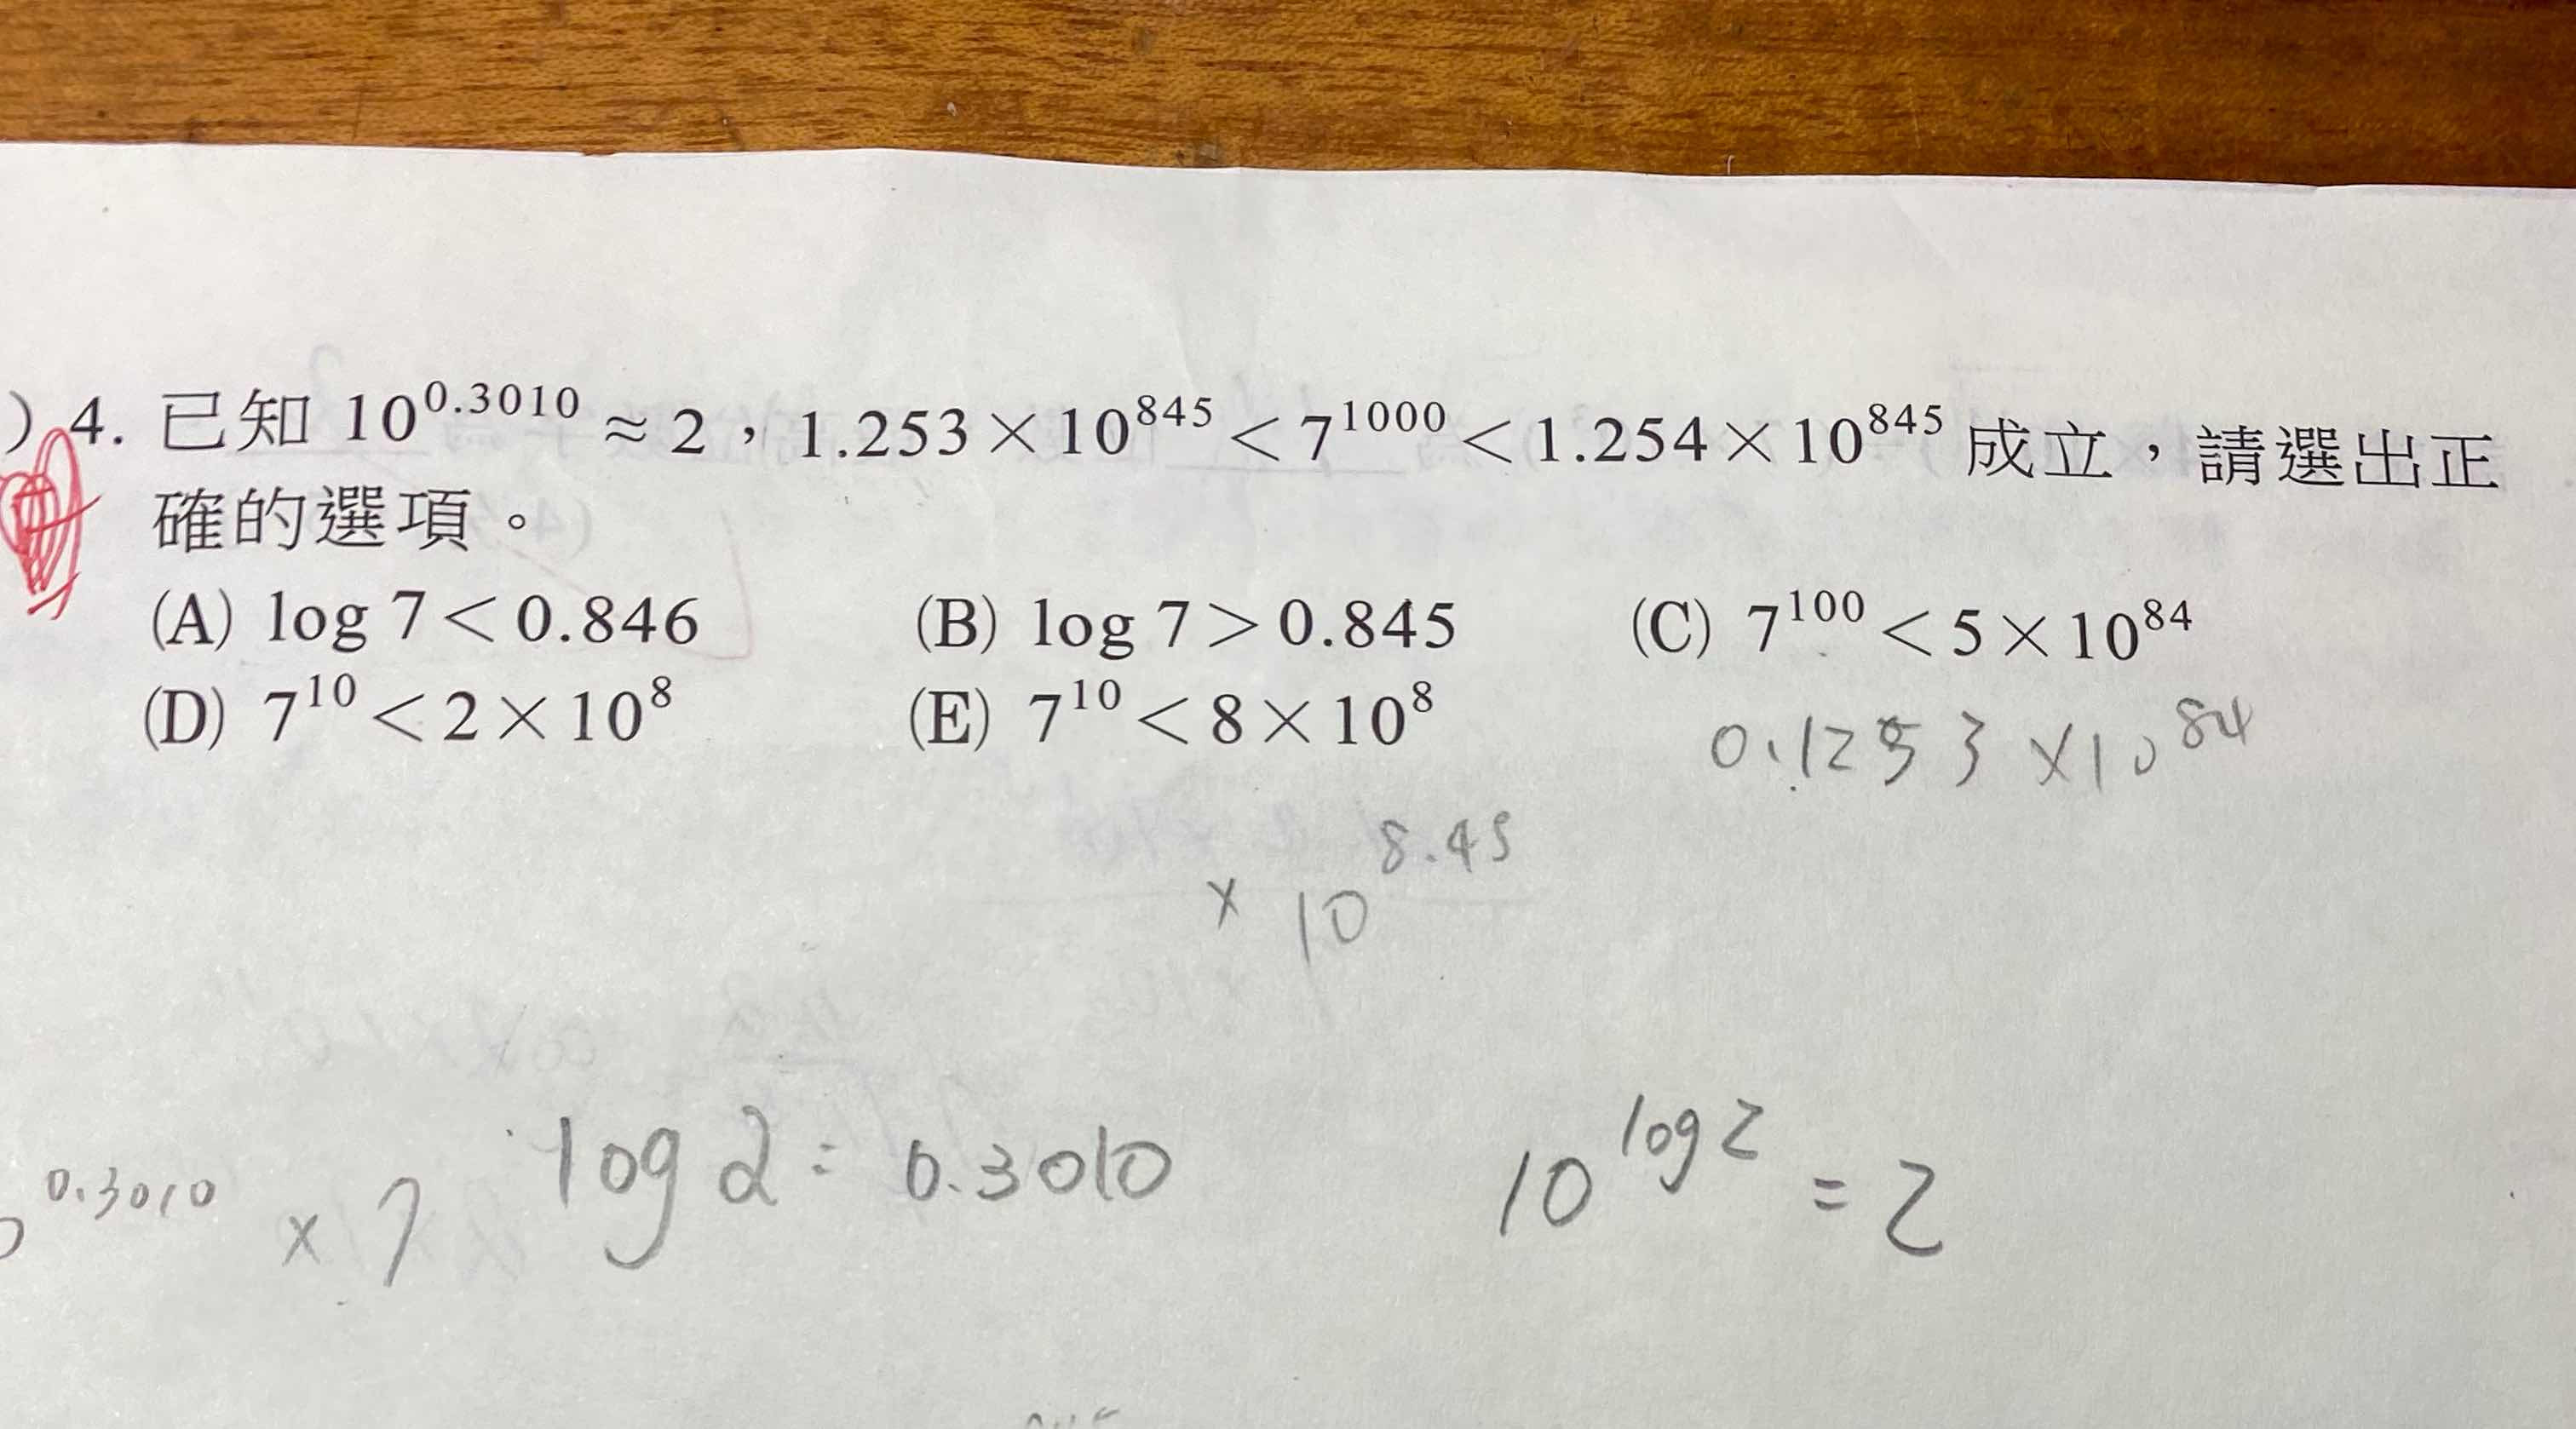 ) 4. 已知 10^0.3010 ≈ 2，1.253 × 10^845 < 7^1000 < 1.254 × 10^845 成立，請選出正
確的選項。
(A) log 7 < 0.846 (B) log 7 > 0.845 (C) 7^100 < 5 × 10^84
(D) 7^10 < 2 × 10^8 (E) 7^10 < 8 × 10^8
0.1253 × 10^84
× 10^8.45
0.3010 × 7 log 2 = 0.3010 10^log 2 = 2